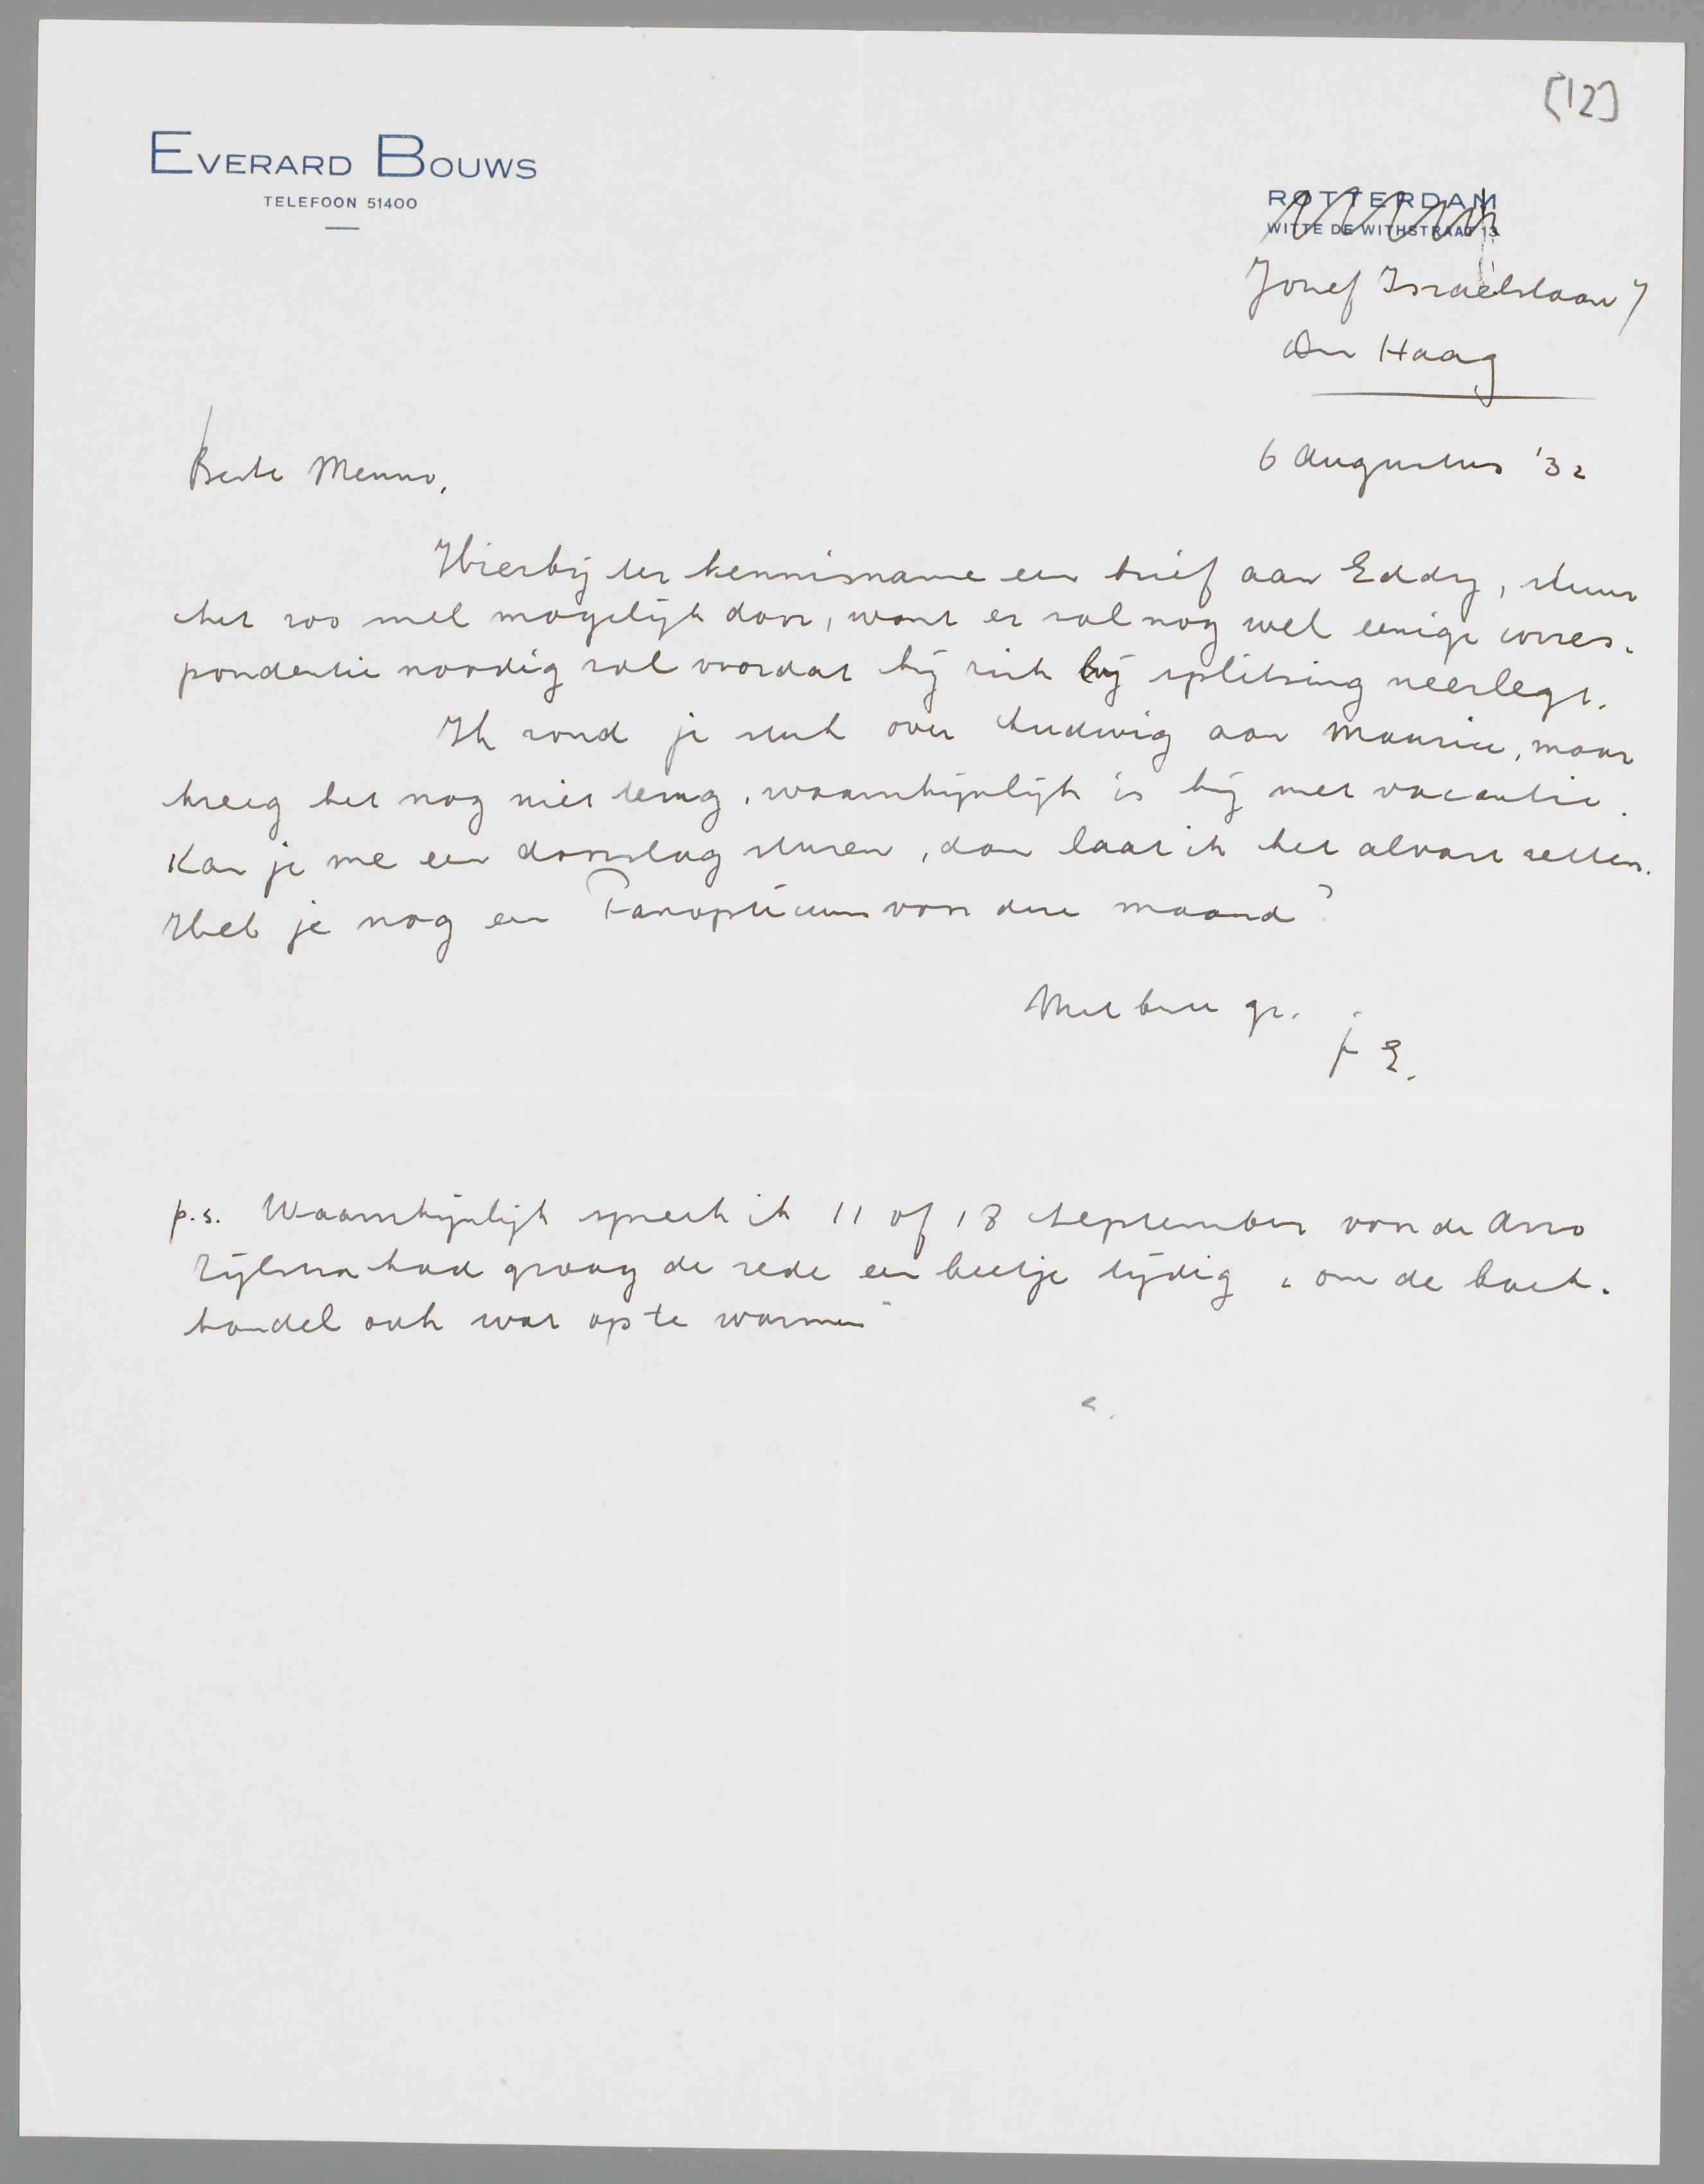 [12]
EVERARD BOUWS
TELEFOON 51400
ROTTERDAM
WITTE DE WITHSTRAAT 13
Jozef Israëlslaan 7
Den Haag
6 Augustus '32
Beste Menno,
Hierbij ter kennisname een brief aan Eddy, stuur
het zoo snel mogelijk door, want er zal nog wel eenige corres-
pondentie noodig zal voordat hij zich bij splitsing neerlegt.
Ik zond je stuk over Ludwig aan Maurice, maar
kreeg het nog niet terug, waarschijnlijk is hij met vacantie.
Kan je me een doorslag sturen, dan laat ik het alvast zetten.
Heb je nog een Panopticum voor deze maand?
Met beste gr.
je E.
p.s. Waarschijnlijk spreek ik 11 of 18 September voor de Avro
Zijlstra had graag de rede een beetje tijdig „ om de boek-
handel ook wat op te warmen"